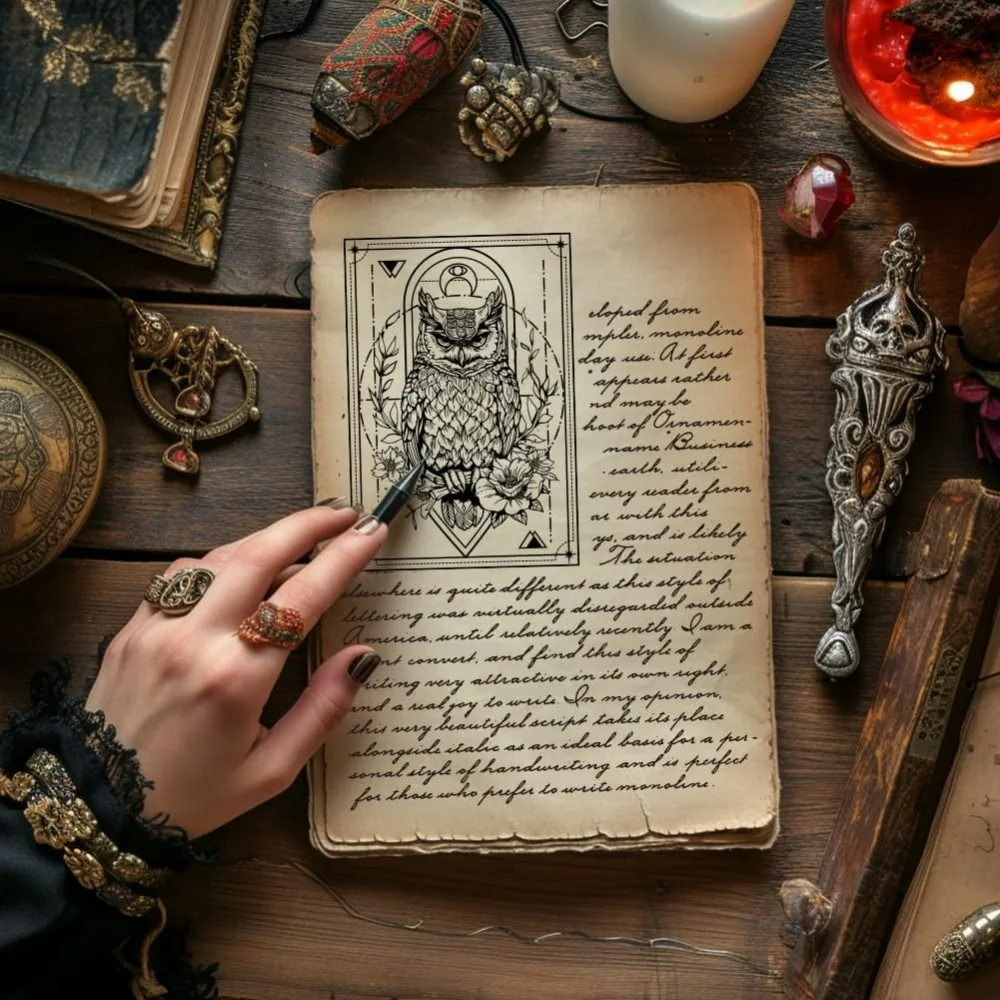 eloped from
mpler, monoline
day use. At first
appears rather
nd may be
hoot of Ornamen-
name Business
earth, utili-
every reader from
ar with this
ys, and is likely
The situation
elsewhere is quite different as this style of
lettering was virtually disregarded outside
America, until relatively recently I am a
nt convert, and find this style of
riting very attractive in its own right,
and a real joy to write. In my opinion,
this very beautiful script takes its place
alongside italic as an ideal basis for a per-
sonal style of handwriting and is perfect
for those who prefer to write monoline.